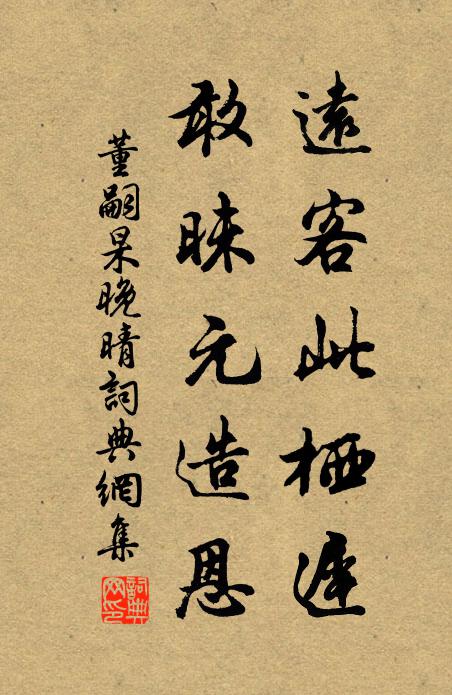 遠客此栖遲
敢昧元造恩
董嗣杲晚晴詞典網集
詞典网印